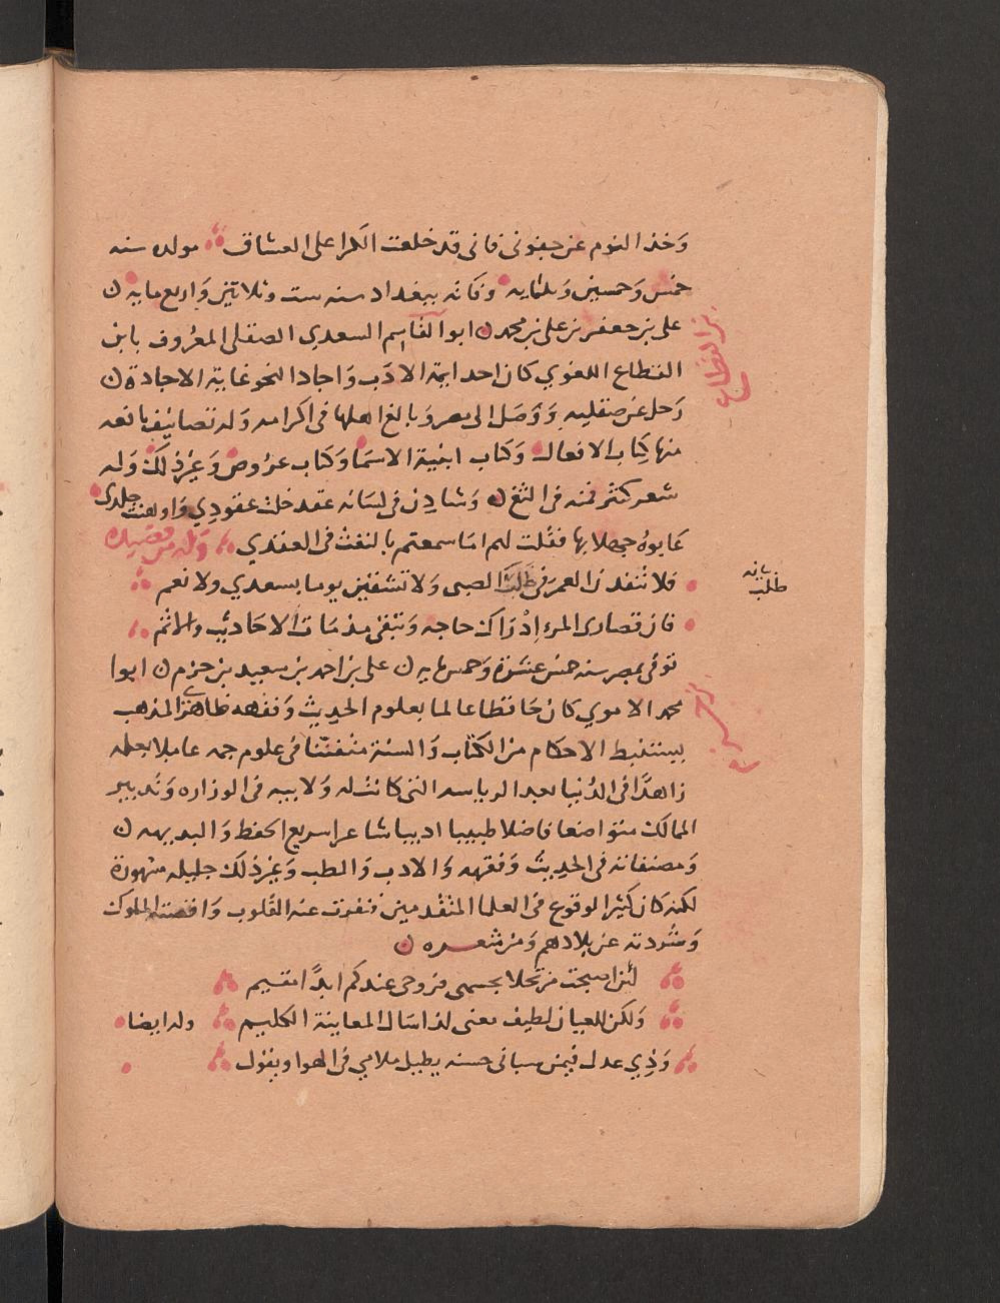 وخذ النوم عن جفوني فاني قد خلعت الكرا على العشاق مولده سنه
خمس وخمسين وثلثمايه وفاته ببغداد سنه ست وثلاثين واربع مايه ن
علي بن جعفر بن علي بن محمد ن ابوا القاسم السعدي الصقلي المعروف بابن
القطاع اللغوي كان احد ايمة الادب واجادا النحو غاية الاجادة ن
رحل عن صقليه ووصل الى مصر وبالغ اهلها في اكرامه وله تصانيف نافعه
منها كتاب الافعال وكتاب ابنية الاسما وكتاب عروض وغير ذلك وله
شعر كثير فمنه في الثغ ن وشادن في لسانه عقد خلت عقودي واوهنت جلدي
عابوه جهلا بها فقلت لهم اما سمعتم بالنفث في العقدي وله من قصيده
فلا تنفدن العمر في طلب الصبى ولا تشقين يوما بسعدي ولا نعم
فان قصارى المرء ادراك حاجه وتبقى مذمات الاحاديث والاثم
توفي بمصر سنه خمس عشرة وخمسمايه ن علي بن احمد بن سعيد بن حزم ن ابوا
محمد الاموي كان حافظا عالما بعلوم الحديث وفقهه ظاهري المذهب
يستنبط الاحكام من الكتاب والسنة متفننا في علوم جمه عاملا بعلمه
زاهدا في الدنيا بعد الرياسه التي كانت له ولابيه في الوزاره وتدبير
الممالك متواضعا فاضلا طبيبا اديبا شاعرا سريع الحفظ والبديهه ن
ومصنفاته في الحديث وفقهه والادب والطب وغير ذلك جليله مشهورة
لكنه كان كثير الوقوع في العلما المتقدمين فنفرت عنه القلوب واقصته الملوك
وشردته عن بلادهم ومن شعره ن
لئن اصبحت مرتحلا بجسمي فروحي عندكم ابدا مقيم
ولكن للعيان لطيف معنى لذا سال المعاينة الكليم وله ايضا
وذي عدل فيمن سباني حسنه يطيل ملامي في الهوا ويقول
بن القطاع
بيانه
طلب
بن حزم